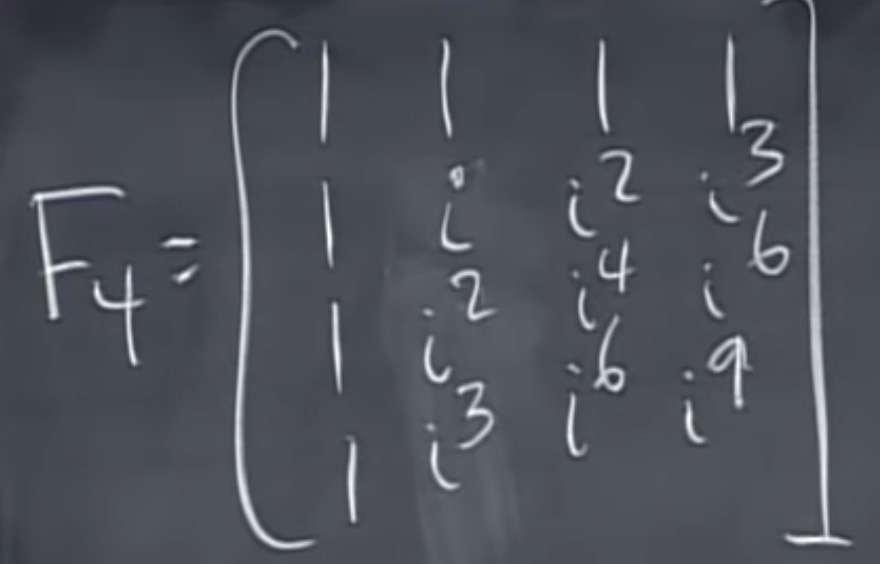 F₄ = [ 1 1 1 1
1 i i² i³
1 i² i⁴ i⁶
1 i³ i⁶ i⁹ ]